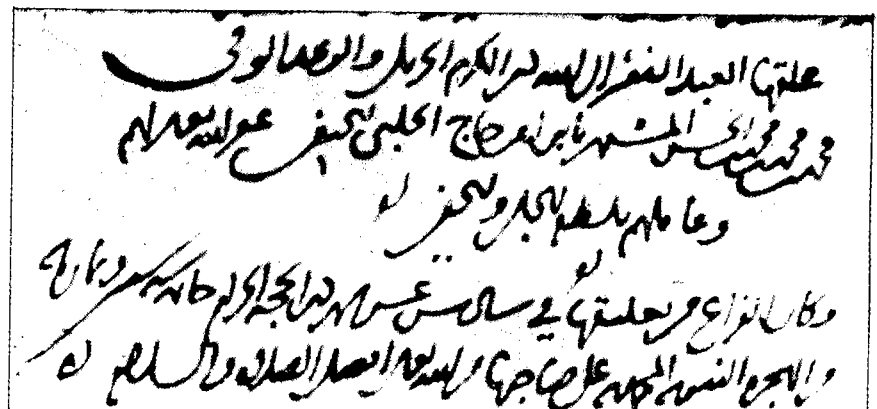 علقها العبد الفقير الى الله ذي الكرم الجزيل والوعد الوفي
محمد بن محمد بن محمد بن الحسن المشتهر بابن امير حاج الحلبي الحنفي عفى الله تعالى لهم
وعاملهم بلطفه الجلي والخفي
وكان الفراغ من تعليقها في سادس عشر شهر ذي الحجة الحرام
من الهجرة النبوية على صاحبها من الله تعالى افضل الصلاة والسلام